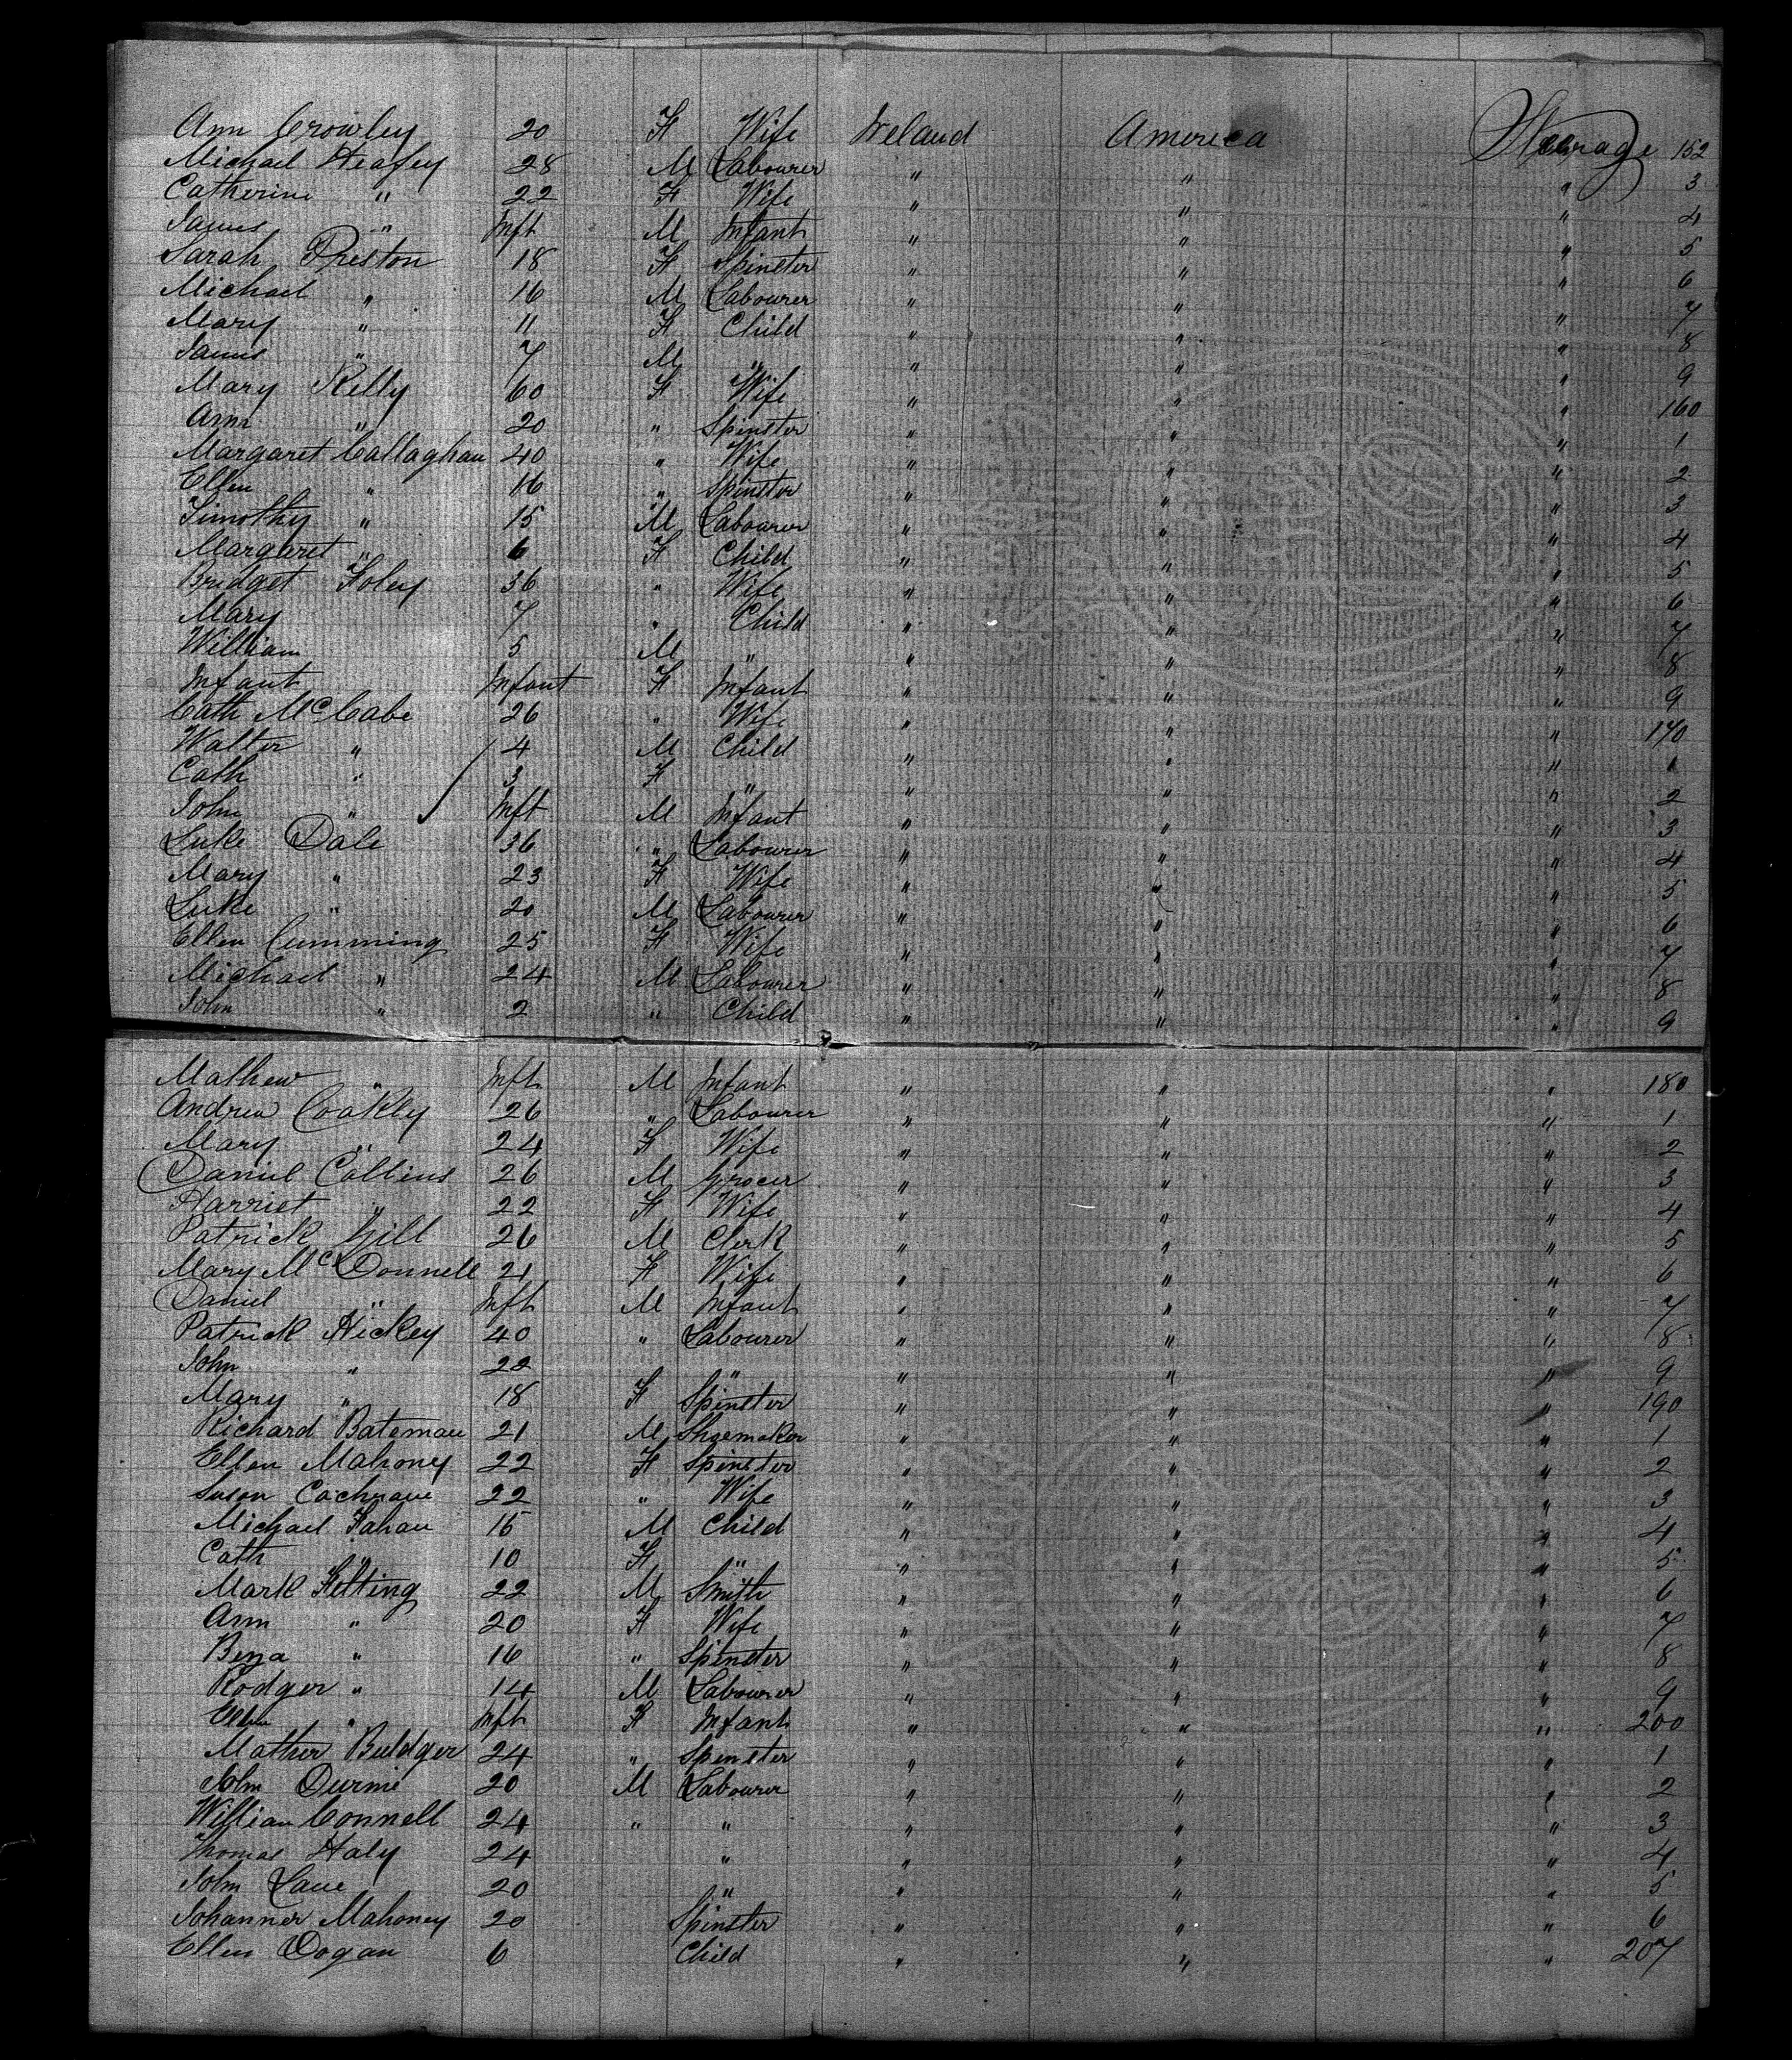 Ann Crowley 20 F Wife Ireland America Steerage 152
Michael Heafey 28 M Labourer " " " 3
Catherine " 22 F Wife " " " 4
James " Inft M Infant " " " 5
Sarah Preston 18 F Spinster " " " 6
Michael " 16 M Labourer " " " 7
Mary " 11 F Child " " " 8
James " 7 M " " " " 9
Mary Kelly 60 F Wife " " " 160
Ann " 20 " Spinster " " " 1
Margaret Callaghan 40 " Wife " " " 2
Ellen " 16 " Spinster " " " 3
Timothy " 15 M Labourer " " " 4
Margaret " 6 F Child " " " 5
Bridget Foley 36 " Wife " " " 6
Mary 7 " Child " " " 7
William 5 M " " " " 8
Infant Infant F Infant " " " 9
Cath McCabe 26 " Wife " " " 170
Walter " 4 M Child " " " 1
Cath " 3 F " " " " 2
John " Inft M Infant " " " 3
Luke Dale 36 " Labourer " " " 4
Mary " 23 F Wife " " " 5
Luke " 20 M Labourer " " " 6
Ellen Cumming 25 F Wife " " " 7
Michael " 24 M Labourer " " " 8
John " 2 " Child " " " 9
Mathew " Inft M Infant " " " 180
Andrew Coakley 26 " Labourer " " " 1
Mary " 24 F Wife " " " 2
Daniel Collins 26 M Grocer " " " 3
Harriet " 22 F Wife " " " 4
Patrick Gill 26 M Clerk " " " 5
Mary McDonnell 21 F Wife " " " 6
Daniel " Inft M Infant " " " 7
Patrick Hickey 40 " Labourer " " " 8
John " 22 " " " " 9
Mary " 18 F Spinster " " " 190
Richard Bateman 21 M Shoemaker " " " 1
Ellen Mahoney 22 F Spinster " " " 2
Susan Cochrane 22 " Wife " " " 3
Michael Fahan 15 M Child " " " 4
Cath " 10 F " " " " 5
Mark 22 M Smith " " " 6
Ann " 20 F Wife " " " 7
" 16 " Spinster " " " 8
Rodger " 14 M Labourer " " " 9
Ellen " Inft F Infant " " " 200
24 " Spinster " " " 1
John 20 M Labourer " " " 2
William Connell 24 " " " " " 3
Thomas Haly 24 " " " " 4
John Lane 20 " " " " 5
Johanner Mahoney 20 Spinster " " " 6
Ellen Dogan 6 Child " " " 207